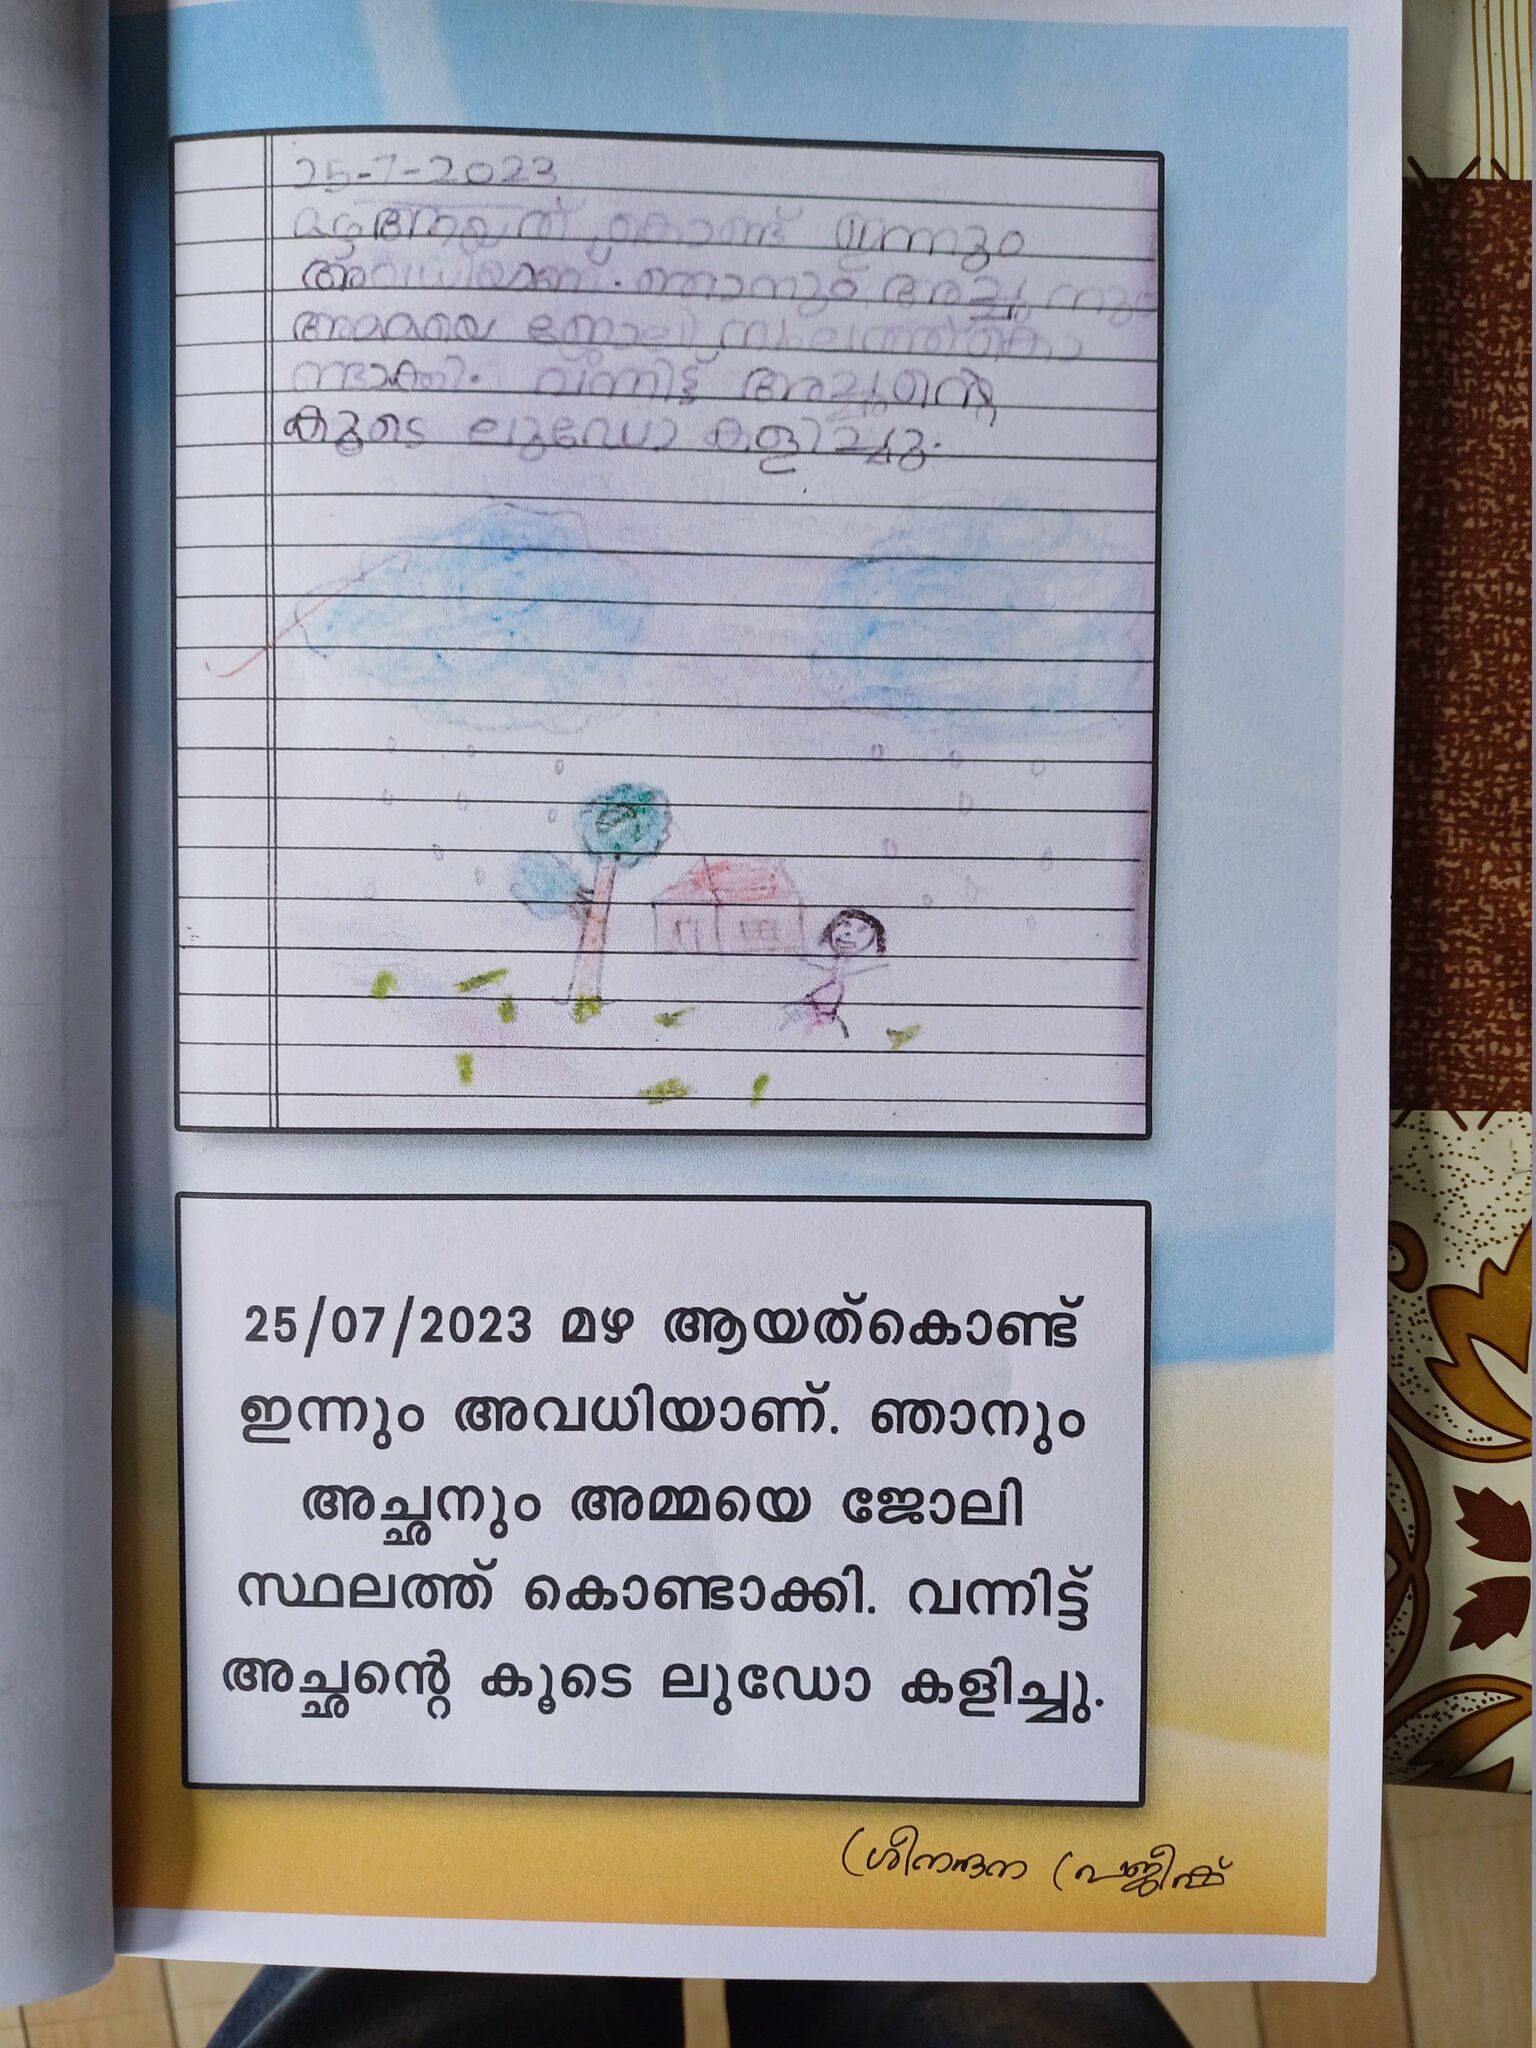 25-7-2023
മഴ ആയത് കൊണ്ട് ഇന്നും
അവധിയാണ്. ഞാനും അച്ഛനും
അമ്മയെ ജോലി സ്ഥലത്ത് കൊ
ണ്ടാക്കി. വന്നിട്ട് അച്ഛന്റെ
കൂടെ ലുഡോ കളിച്ചു.
25/07/2023 മഴ ആയത്കൊണ്ട്
ഇന്നും അവധിയാണ്. ഞാനും
അച്ഛനും അമ്മയെ ജോലി
സ്ഥലത്ത് കൊണ്ടാക്കി. വന്നിട്ട്
അച്ഛന്റെ കൂടെ ലുഡോ കളിച്ചു.
ശ്രീനന്ദന പ്രജീഷ്